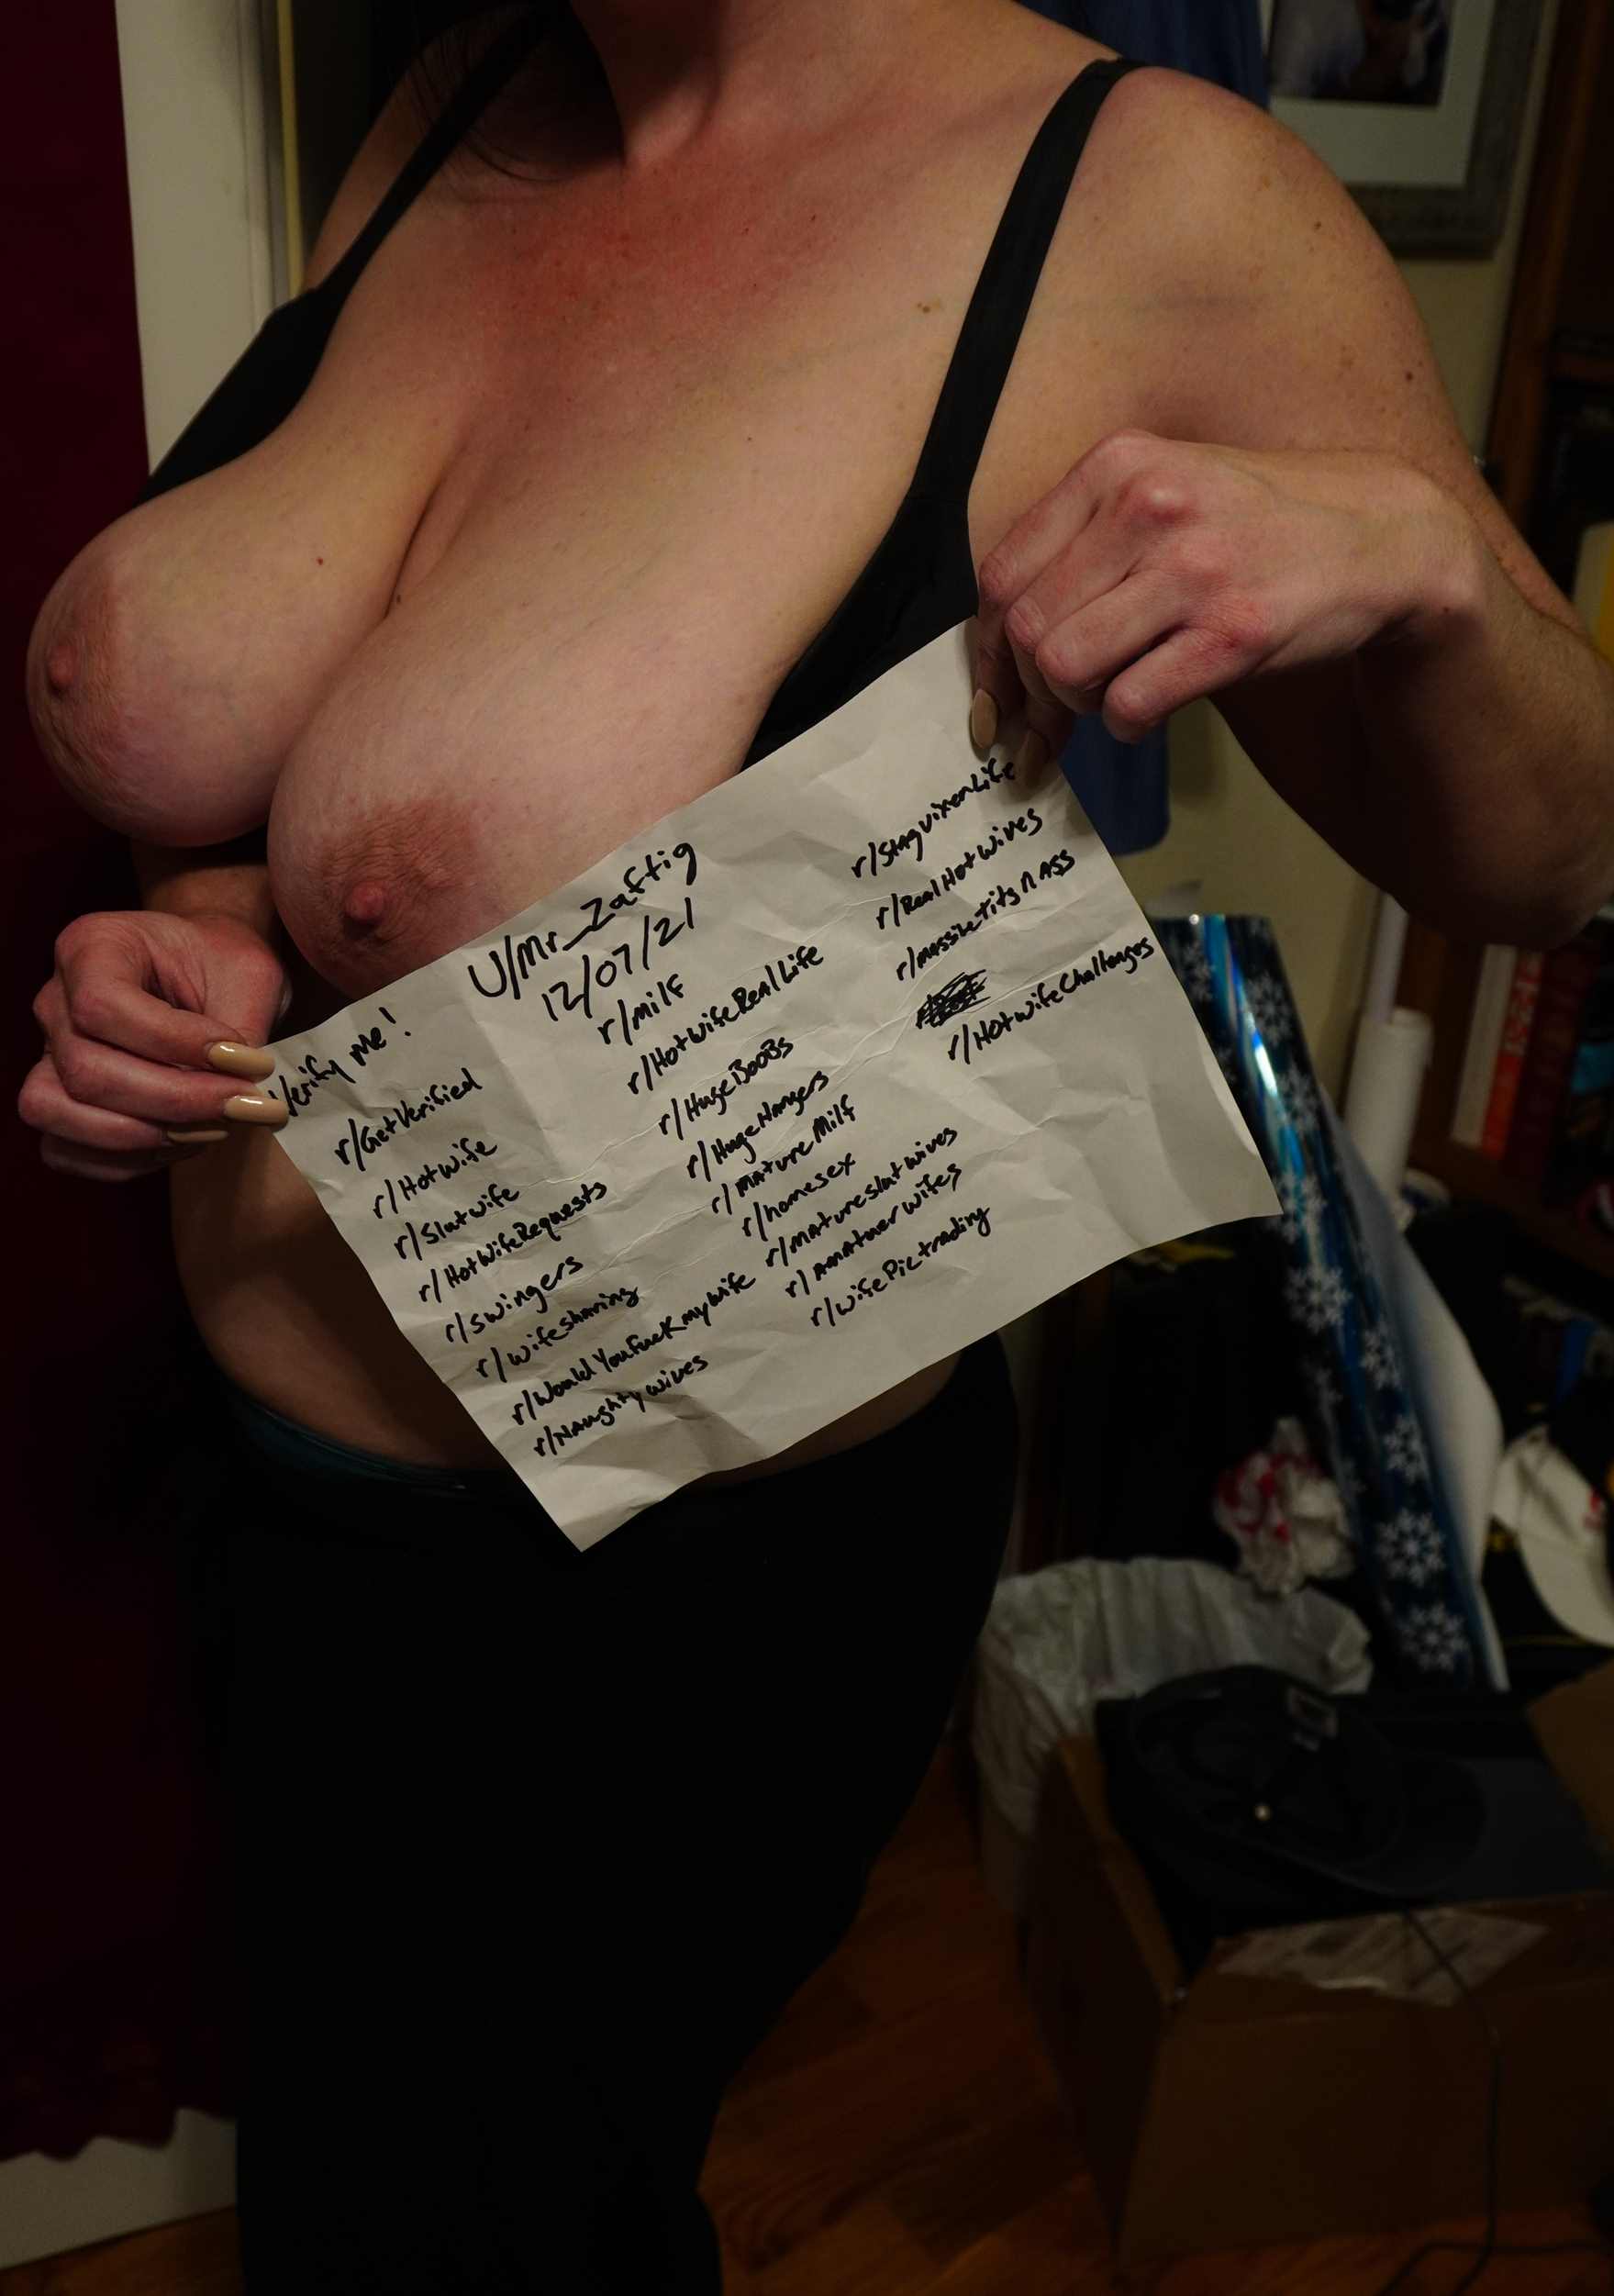 Verify me!
r/GetVerified
r/Hotwife
r/Slutwife
r/HotwifeRequests
r/swingers
r/wifesharing
r/WouldYouFuckmywife
r/Naughtywives
U/Mr_Zaftig
12/07/21
r/milf
r/HotwifeRealLife
r/HugeBooBs
r/HugeHangers
r/MatureMilf
r/homesex
r/matureslutwives
r/Amatuerwifes
r/wifePictrading
r/StagvixenLife
r/RealHotwives
r/massivetitsnAss
r/HotwifeChallenges